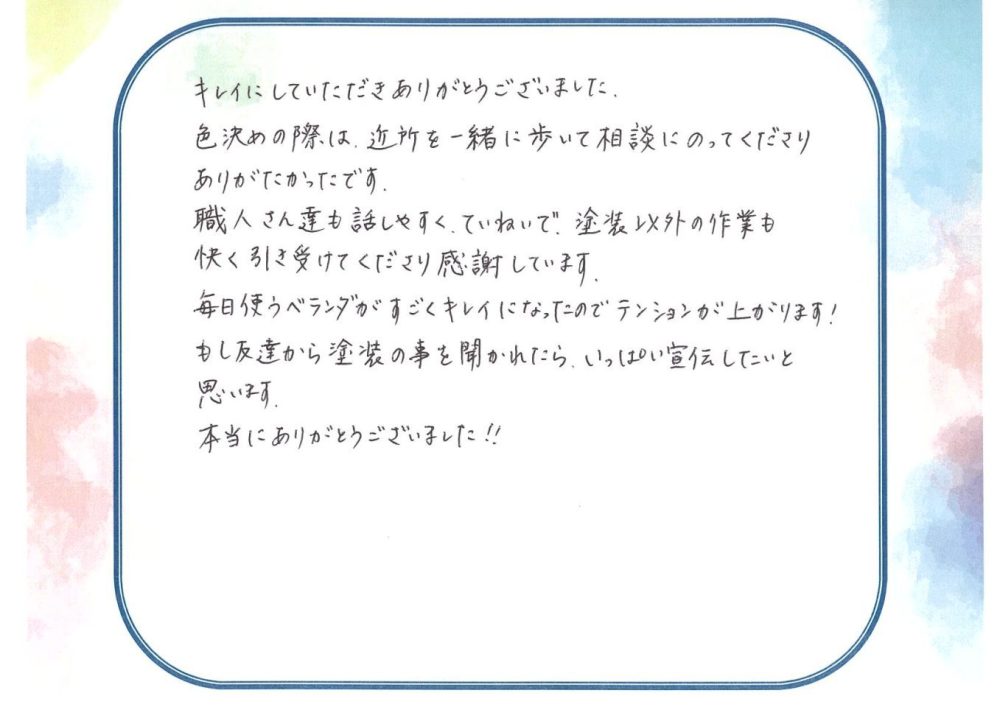 キレイにしていただきありがとうございました.
色決めの際は、近所を一緒に歩いて相談にのってくださり
ありがたかったです.
職人さん達も話しやすく、ていねいで、塗装以外の作業も
快く引き受けてくださり感謝しています.
毎日使うベランダがすごくキレイになったのでテンションが上がります!
もし友達から塗装の事を聞かれたら、いっぱい宣伝したいと
思います.
本当にありがとうございました!!